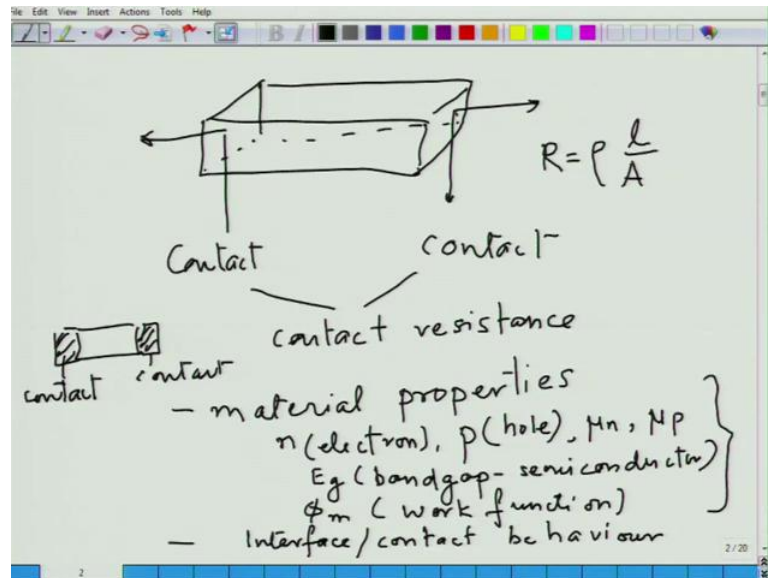 File Edit View Insert Actions Tools Help
B I
R = ρ l/A
Contact contact
contact resistance
contact contact
- material properties
n (electron), p (hole), μn, μp
Eg (bandgap - semiconductor)
ϕm (work function)
- Interface/contact behaviour
2 / 20
2